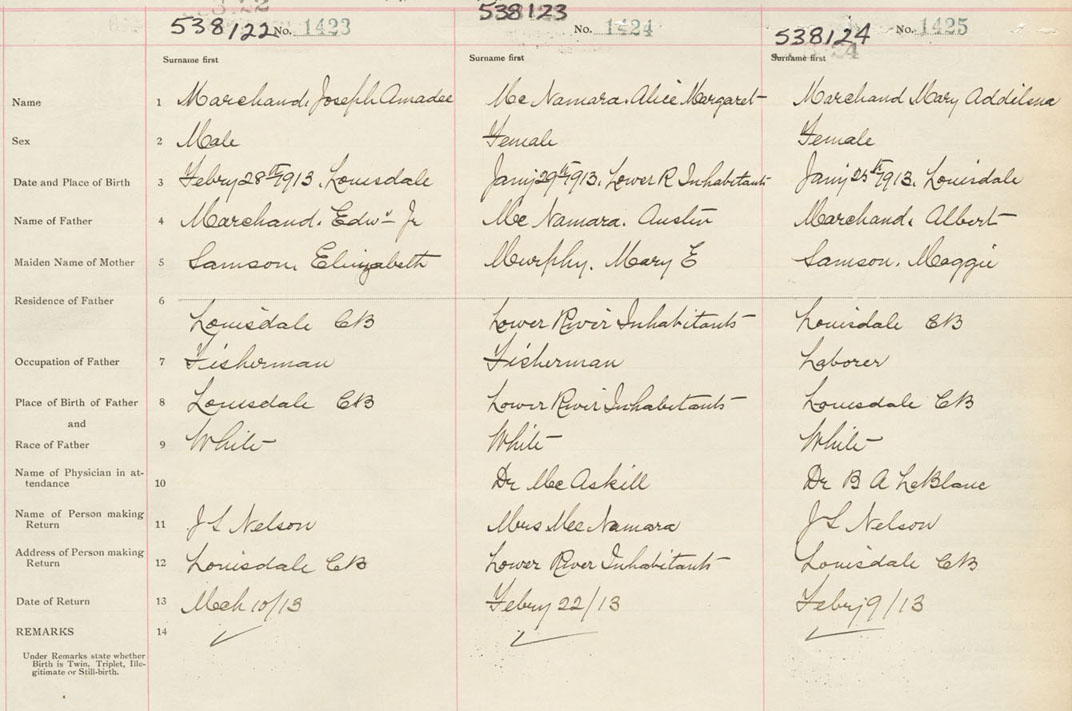 538122 No. 1423 538123 No. 1424 538124 No. 1425
Surname first Surname first Surname first
Name 1 Marchand, Joseph Amadee Mc Namara, Alice Margaret Marchand Mary
Sex 2 Male Female Female
Date and Place of Birth 3 Febry 28th 1913, Louisdale Jany 29th 1913, Lower R Inhabitants Jany 25th 1913, Louisdale
Name of Father 4 Marchand, Edwd Jr Mc Namara, Austin Marchand, Albert
Maiden Name of Mother 5 Samson, Elizabeth Murphy, Mary E Samson, Maggie
Residence of Father 6
Louisdale CB Lower River Inhabitants Louisdale CB
Occupation of Father 7 Fisherman Fisherman Laborer
Place of Birth of Father 8 Louisdale CB Lower River Inhabitants Louisdale CB
and
Race of Father 9 White White White
Name of Physician in at-
tendance 10 Dr McAskill Dr B A LeBlanc
Name of Person making
Return 11 J S Nelson Mrs McNamara J S Nelson
Address of Person making
Return 12 Louisdale CB Lower River Inhabitants Louisdale CB
Date of Return 13 Mch 10/13 Febry 22/13 Febry 9/13
REMARKS 14
Under Remarks state whether
Birth is Twin, Triplet, Ille-
gitimate or Still-birth.